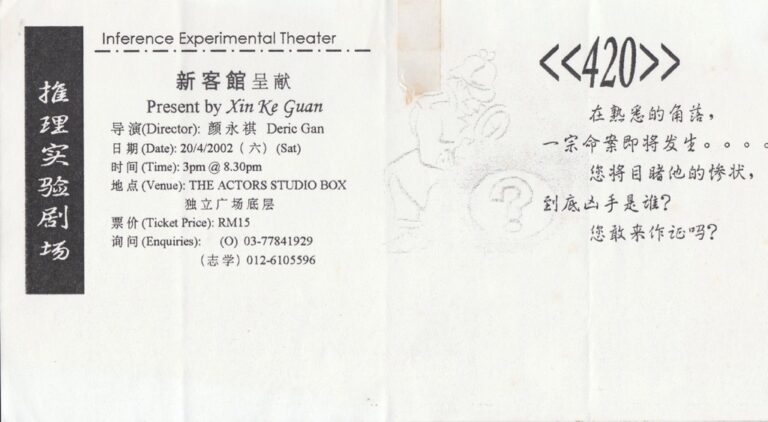 推理实验剧场
Inference Experimental Theater
新客館呈献
Present by Xin Ke Guan
导演(Director): 颜永祺 Deric Gan
日期(Date): 20/4/2002（六）(Sat)
时间(Time): 3pm @ 8.30pm
地点(Venue): THE ACTORS STUDIO BOX
独立广场底层
票价(Ticket Price): RM15
询问(Enquiries): (O) 03-77841929
(志学) 012-6105596
<<420>>
在熟悉的角落，
一宗命案即将发生。。。。
您将目睹他的惨状，
到底凶手是谁？
您敢来作证吗？
?